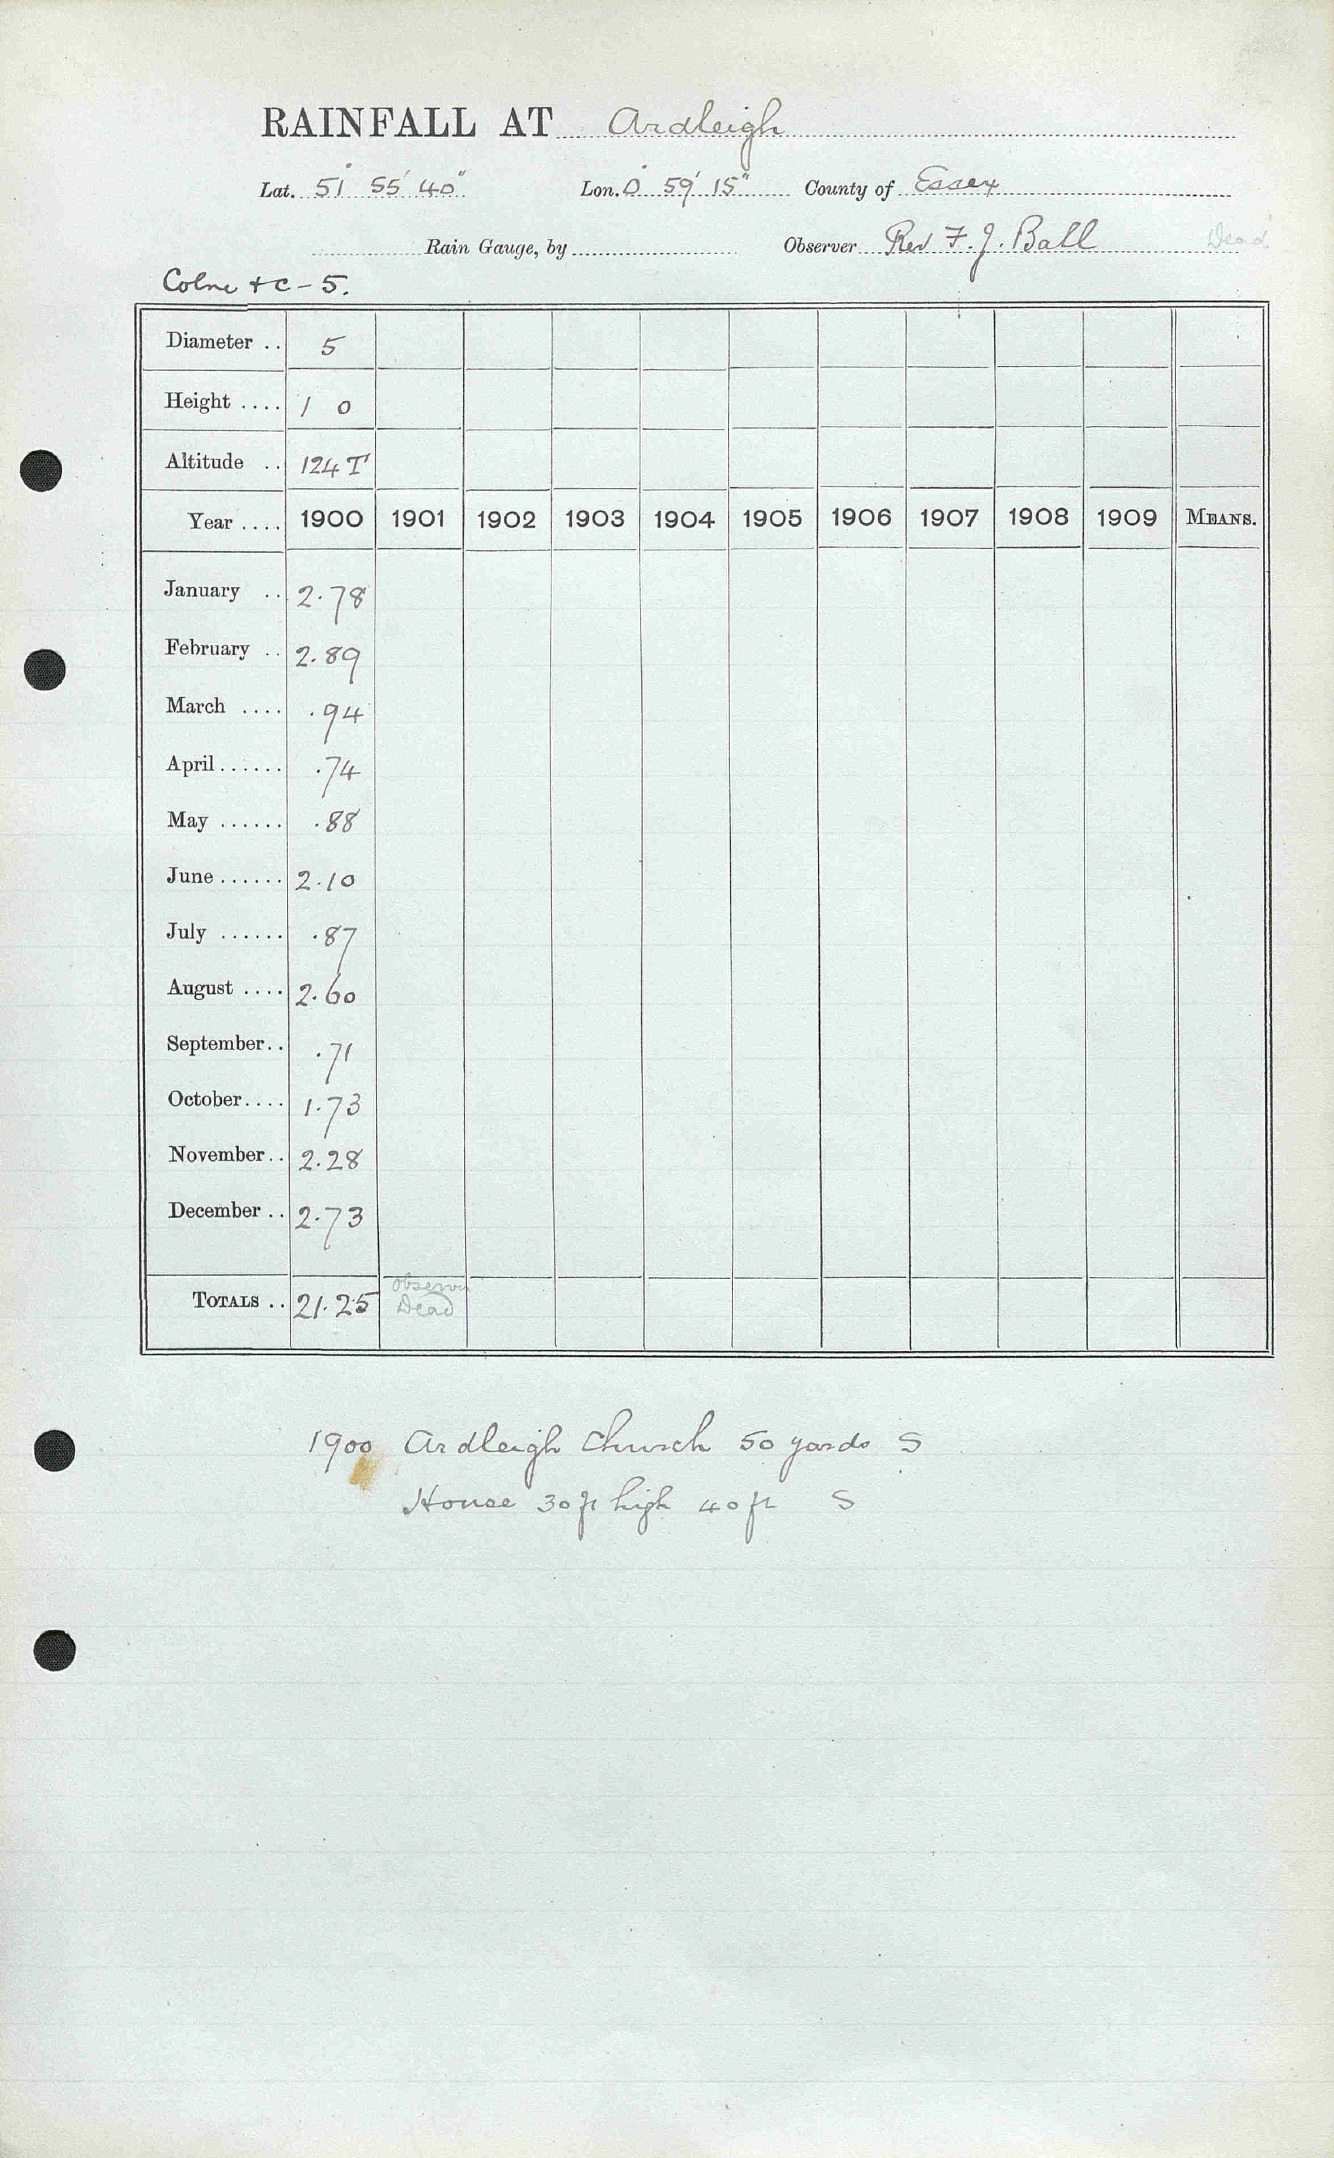 RAINFALL AT Ardleigh
Lat. 51° 55' 40" Lon. 0° 59' 15" County of Essex
Rain Gauge, by Observer Rev F. J. Ball Dead
Colne + C - 5.
Diameter .. 5
Height .... 1 0
Altitude .. 124 T
Year .... 1900 1901 1902 1903 1904 1905 1906 1907 1908 1909 MEANS.
January .. 2.78
February .. 2.89
March .... .94
April...... .74
May ...... .88
June...... 2.10
July ...... .87
August .... 2.60
September.. .71
October.... 1.73
November.. 2.28
December .. 2.73
TOTALS .. 21.25 Observer Dead
1900 Ardleigh Church 50 yards S
House 30 ft high 40 ft S